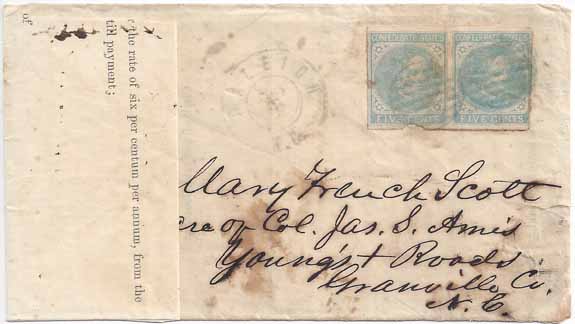 of
the rate of six per centum per annum, from the
till payment;
CONFEDERATE STATES
FIVE CENTS
CONFEDERATE STATES
FIVE CENTS
Mary French Scott
Care of Col. Jas. S. Amis
Young's + Roads
Granville Co.
N. C.